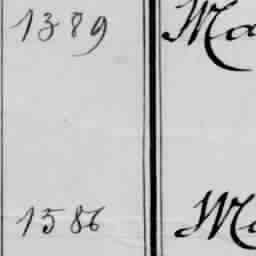 1389 Ma
1586 Ma